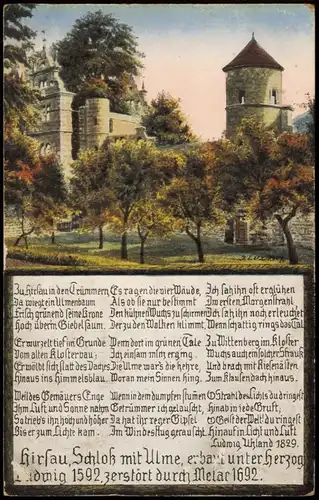 Zu Hirsau in den Trümmern
Da wiegt ein Ulmenbaum
Frisch grünend seine Krone
Hoch überm Giebelsaum.
Er wurzelt tief im Grunde
Vom alten Klosterbau;
Er wölbt sich statt des Daches
Hinaus ins Himmelsblau.
Weil des Gemäuers Enge
Ihm Luft und Sonne nahm
So trieb's ihn hoch und höher
Bis er zum Lichte kam.
Es ragen die vier Wände,
Als ob sie nur bestimmt
Den kühnen Wuchs zu schirmen
Der zu den Wolken klimmt.
Wenn dort im grünen Tale
Ich einsam mich erging
Die Ulme war's die hehre,
Woran mein Sinnen hing.
Wenn in dem dumpfen stummen
Getrümmer ich gelauscht,
Da hat ihr reger Gipfel
Im Windesflug gerauscht.
Ich sah ihn oft erglühen
Im ersten Morgenstrahl
Ich sah ihn noch erleuchtet
Wenn schattig rings das Tal.
Zu Wittenberg im Kloster
Wuchs auch ein solcher Strauß
Und brach mit Riesenästen
Zum Klausendach hinaus.
O Strahl des Lichts du dringest
Hinab in jede Gruft,
O Geist der Welt du ringest
Hinauf in Licht und Luft
Ludwig Uhland 1829.
Hirsau, Schloß mit Ulme, erbaut unter Herzog
Ludwig 1592, zerstört durch Melac 1692.